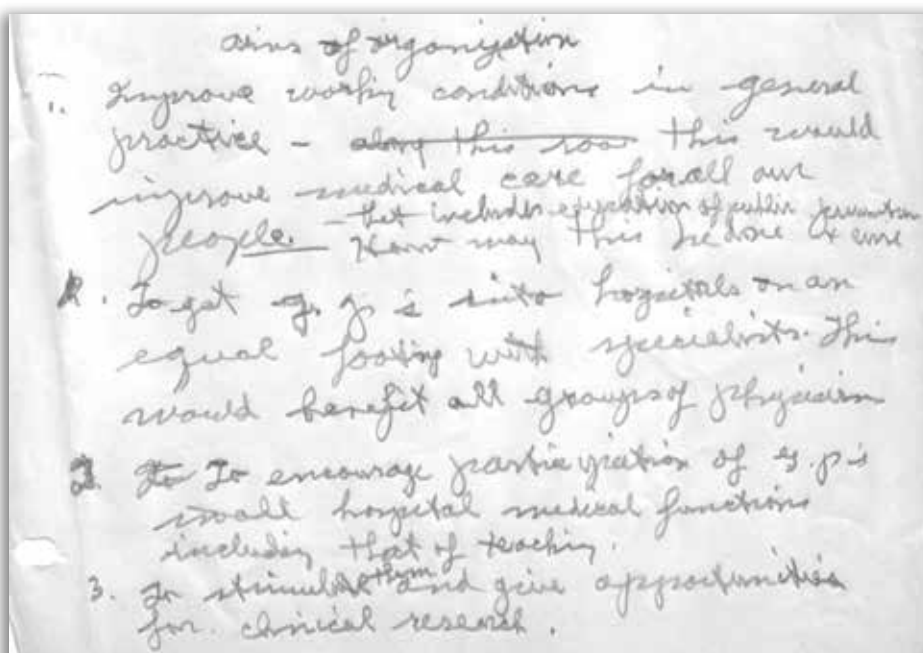 aims of organization
1. Improve working conditions in general
practice - along this this would
improve medical care for all our
people. - that includes education of public
How may this be done
2. To get g.p's into hospitals on an
equal footing with specialists. This
would benefit all groups of physicians
To To encourage participation of g.p's
small hospital medical functions
including that of teaching.
3. To stimulate them and give opportunities
for clinical research.